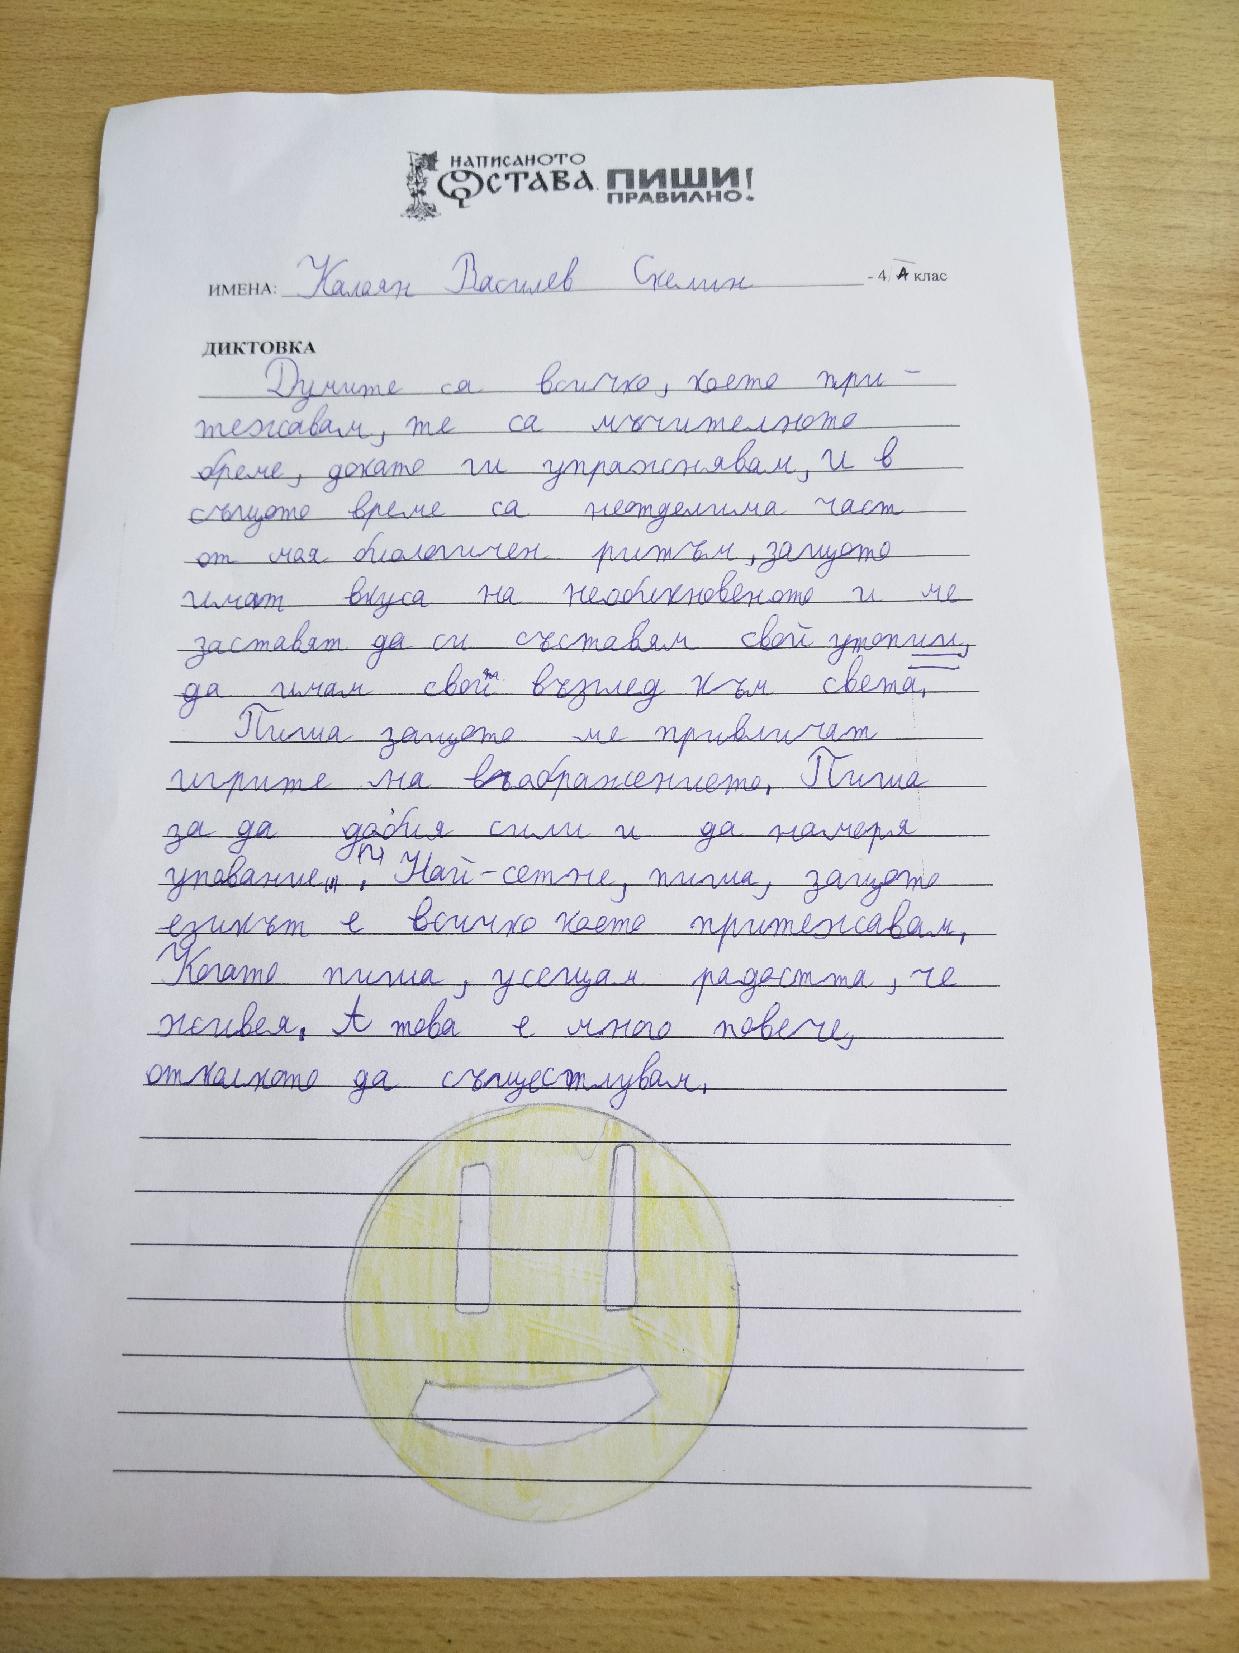 НАПИСАНОТО
ОСТАВА. ПИШИ
ПРАВИЛНО!
ИМЕНА: Калоян Василев Скелин - 4. А клас
ДИКТОВКА
Думите са всичко, което при-
тежавам, те са мъчителното
бреме, докато ги упражнявам, и в
същото време са неотделима част
от моя биологичен ритъм, защото
имат вкуса на необикновеното и ме
заставят да си съставям свой утопии,
да имам свой възглед към света.
Пиша защото ме привличат
игрите на въображението. Пиша
за да добия сили и да намеря
упование. Най-сетне, пиша, защото
езикът е всичко което притежавам.
Когато пиша, усещам радостта, че
живея. А това е много повече,
отколкото да съществувам.